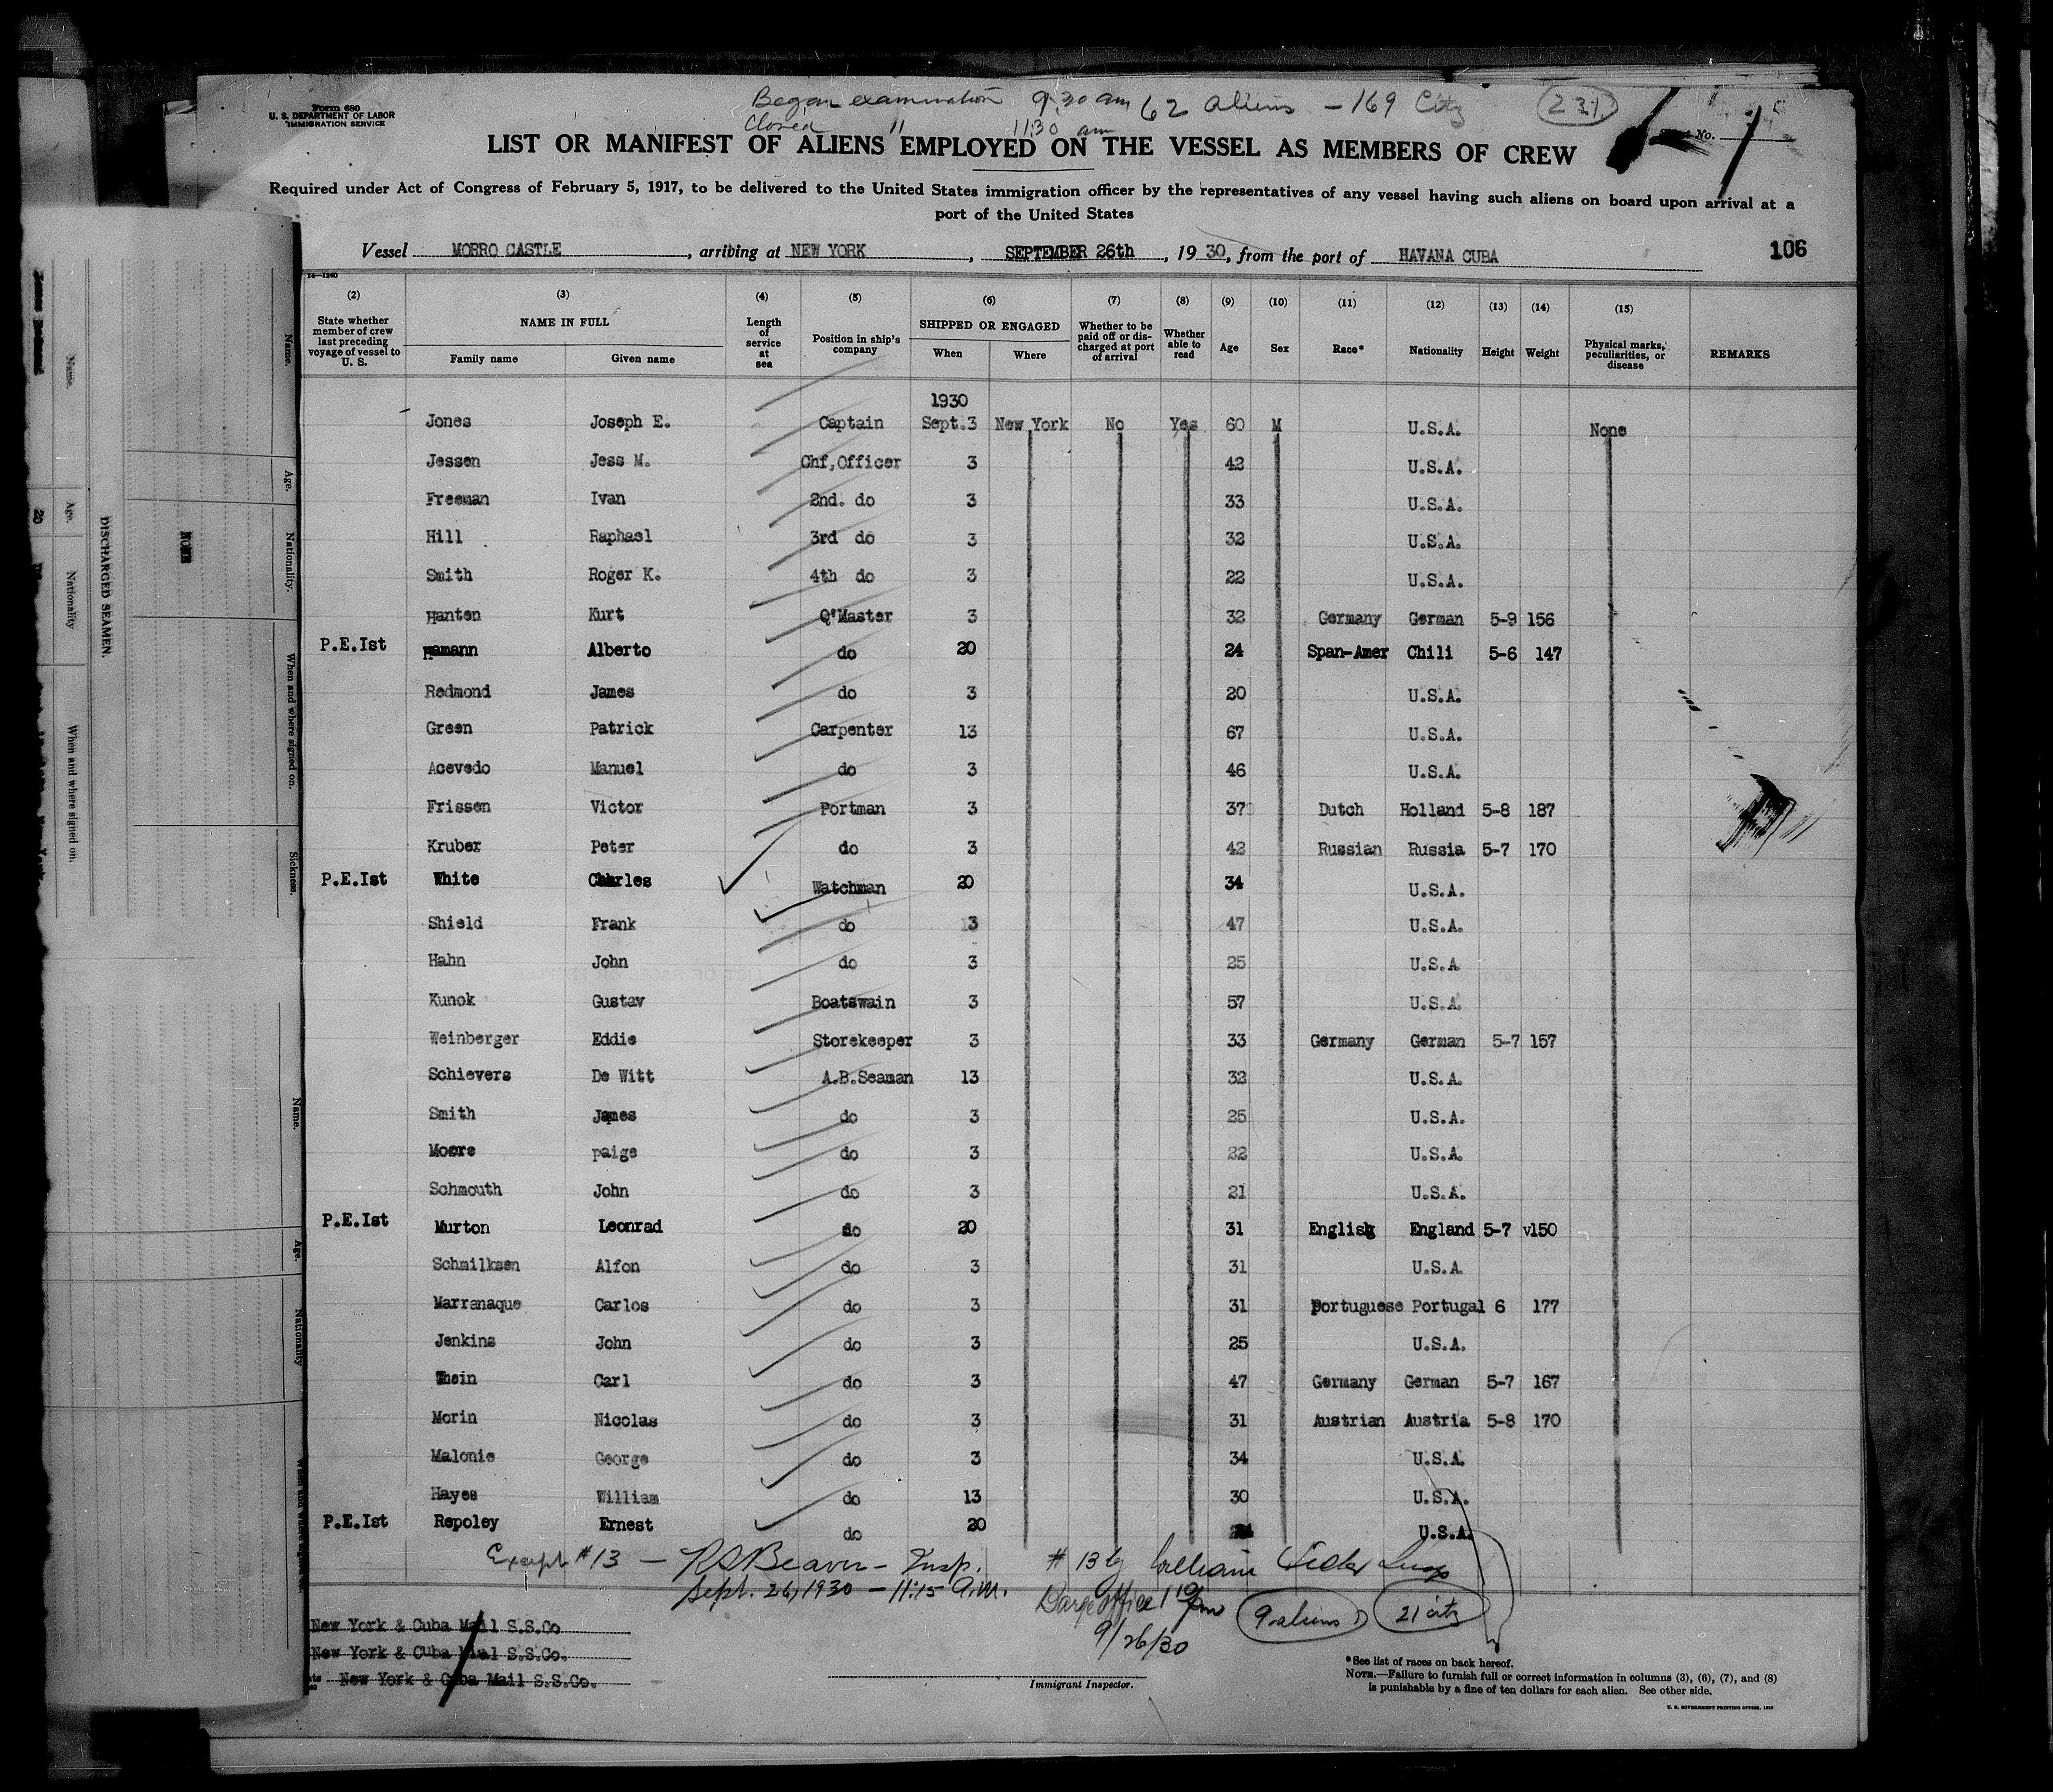 Began examination 9:30 am 62 aliens - 169 Citz
Closed " 11:30 am
231
Form 680
U. S. DEPARTMENT OF LABOR
IMMIGRATION SERVICE
No.
LIST OR MANIFEST OF ALIENS EMPLOYED ON THE VESSEL AS MEMBERS OF CREW
Required under Act of Congress of February 5, 1917, to be delivered to the United States immigration officer by the representatives of any vessel having such aliens on board upon arrival at a
port of the United States
Vessel MORRO CASTLE, arriving at NEW YORK, SEPTEMBER 26th, 1930, from the port of HAVANA CUBA 106
14—1240
(2) (3) (4) (5) (6) (7) (8) (9) (10) (11) (12) (13) (14) (15)
State whether member of crew last preceding voyage of vessel to U. S.
NAME IN FULL
Family name Given name
Length of service at sea
Position in ship's company
SHIPPED OR ENGAGED
When Where
Whether to be paid off or discharged at port of arrival
Whether able to read
Age
Sex
Race*
Nationality
Height
Weight
Physical marks, peculiarities, or disease
REMARKS
1930
Jones Joseph E. Captain Sept.3 New York No Yes 60 M U.S.A. None
Jessen Jess M. Chf,Officer 3 42 U.S.A.
Freeman Ivan 2nd. do 3 33 U.S.A.
Hill Raphael 3rd do 3 32 U.S.A.
Smith Roger K. 4th do 3 22 U.S.A.
Hanten Kurt Q'Master 3 32 Germany German 5-9 156
P.E.Ist Hamann Alberto do 20 24 Span-Amer Chili 5-6 147
Redmond James do 3 20 U.S.A.
Green Patrick Carpenter 13 67 U.S.A.
Acevedo Manuel do 3 46 U.S.A.
Frissen Victor Portman 3 37 Dutch Holland 5-8 187
Kruber Peter do 3 42 Russian Russia 5-7 170
P.E.Ist White Charles Watchman 20 34 U.S.A.
Shield Frank do 3 47 U.S.A.
Hahn John do 3 25 U.S.A
Kunok Gustav Boatswain 3 57 U.S.A.
Weinberger Eddie Storekeeper 3 33 Germany German 5-7 157
Schievers De Witt A.B.Seaman 13 32 U.S.A.
Smith James do 3 25 U.S.A.
Moore paige do 3 22 U.S.A.
Schmouth John do 3 21 U.S.A.
P.E.Ist Murton Leonrad do 20 31 English England 5-7 v150
Schmilksen Alfon do 3 31 U.S.A
Marranaque Carlos do 3 31 Portuguese Portugal 6 177
Jenkins John do 3 25 U.S.A.
Thein Carl do 3 47 Germany German 5-7 167
Morin Nicolas do 3 31 Austrian Austria 5-8 170
Malonie George do 3 34 U.S.A.
Hayes William do 13 30 U.S.A.
P.E.Ist Repoley Ernest do 20 U.S.A.
Except #13 — RS Beaver - Insp. # 13 by William Insp
Sept. 26, 1930 — 11:15 A.M. Barge office 1 10 pm
9/26/30
9 aliens
21 citz
New York & Cuba Mail S.S.Co
New York & Cuba Mial S.S.Co.
New York & Cuba Mail S.S.Co.
Immigrant Inspector.
*See list of races on back hereof.
NOTE.—Failure to furnish full or correct information in columns (3), (6), (7), and (8)
is punishable by a fine of ten dollars for each alien. See other side.
U. S. GOVERNMENT PRINTING OFFICE
DISCHARGED SEAMEN.
Name.
Age.
Nationality
When and where signed on.
20
NONE
Name.
Age.
Nationality.
When and where signed on.
Sickness.
Name.
Age.
Nationality